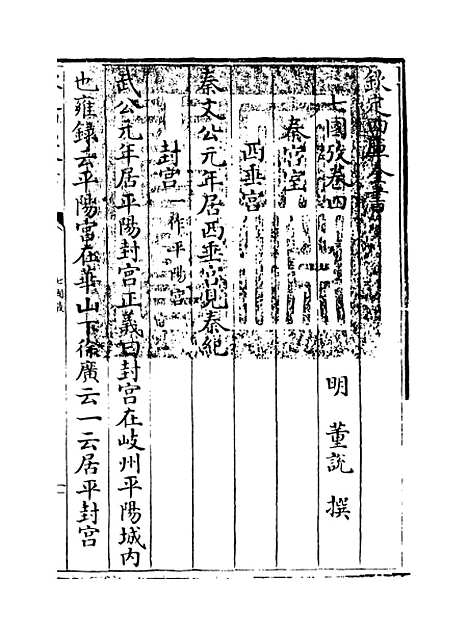 欽定四庫全書
七國攷卷四
明 董說 撰
秦宮室
西垂宮
秦文公元年居西垂宮見秦紀
封宮一作平陽宮
武公元年居平陽封宮正義曰封宮在岐州平陽城内
也雍錄云平陽宮在華山下徐廣云一云居平封宮
七國攷